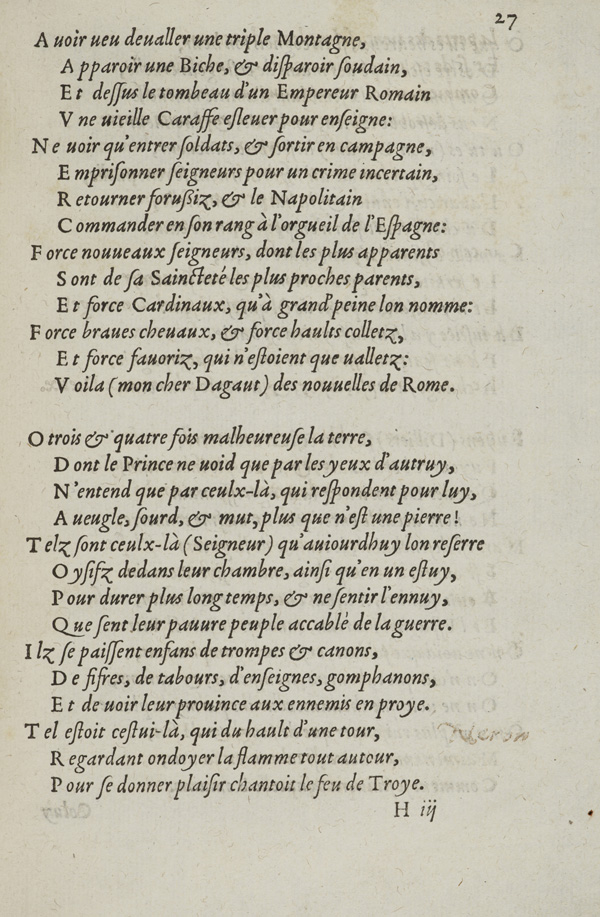 27
A uoir ueu deualler une triple Montagne,
A pparoir une Biche, & disparoir soudain,
E t dessus le tombeau d'un Empereur Romain
V ne uieille Caraffe esleuer pour enseigne:
N e uoir qu'entrer soldats, & sortir en campagne,
E mprisonner seigneurs pour un crime incertain,
R etourner forußiz, & le Napolitain
C ommander en son rang à l'orgueil de l'Espagne:
F orce nouueaux seigneurs, dont les plus apparents
S ont de sa Saincteté les plus proches parents,
E t force Cardinaux, qu'à grand'peine lon nomme:
F orce braues cheuaux, & force haults colletz,
E t force fauoriz, qui n'estoient que ualletz:
V oila (mon cher Dagaut) des nouuelles de Rome.
O trois & quatre fois malheureuse la terre,
D ont le Prince ne uoid que par les yeux d'autruy,
N'entend que par ceulx-là, qui respondent pour luy,
A ueugle, sourd, & mut, plus que n'est une pierre!
T elz sont ceulx-là (Seigneur) qu'auiourdhuy lon reserre
O ysifz dedans leur chambre, ainsi qu'en un estuy,
P our durer plus long temps, & ne sentir l'ennuy,
Q ue sent leur pauure peuple accablé de la guerre.
I lz se paissent enfans de trompes & canons,
D e fifres, de tabours, d'enseignes, gomphanons,
E t de uoir leur prouince aux ennemis en proye.
T el estoit cestui-là, qui du hault d'une tour,
R egardant ondoyer la flamme tout autour,
P our se donner plaisir chantoit le feu de Troye.
H iij